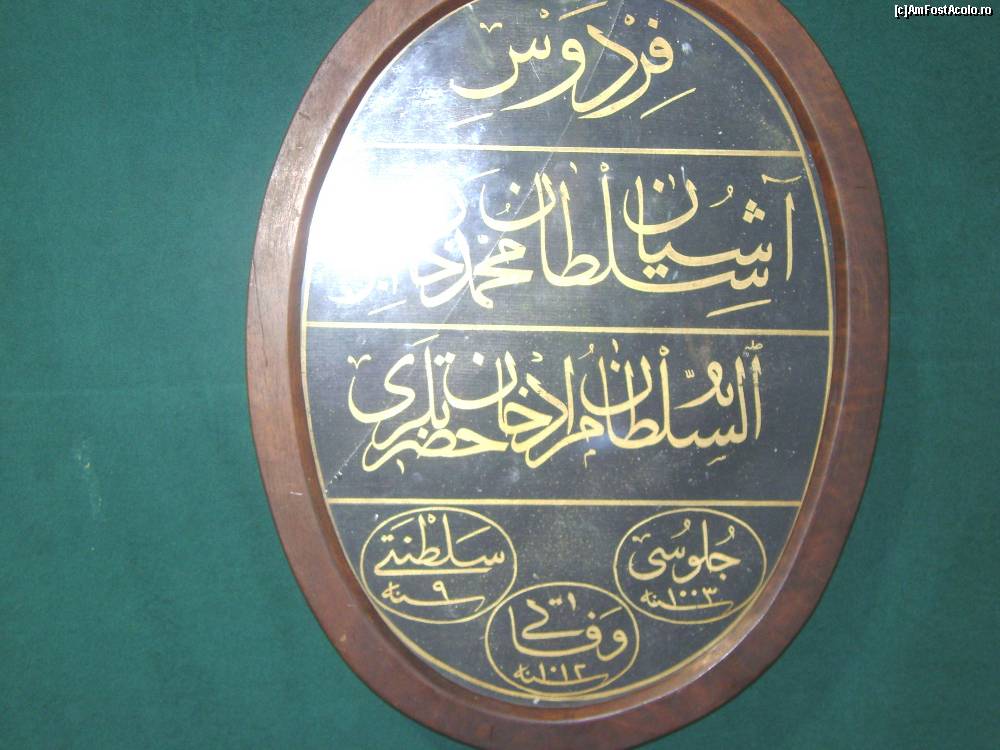 [c]AmFostAcolo.ro
فِرْدَوْسِ
آشيان سلطان محمد خان ابن
السلطان مراد خان حضرتلرى
جلوسى
سنه ١٠٠٣
سلطنتى
سنه ٩
وفاتى
سنه ١٠١٢